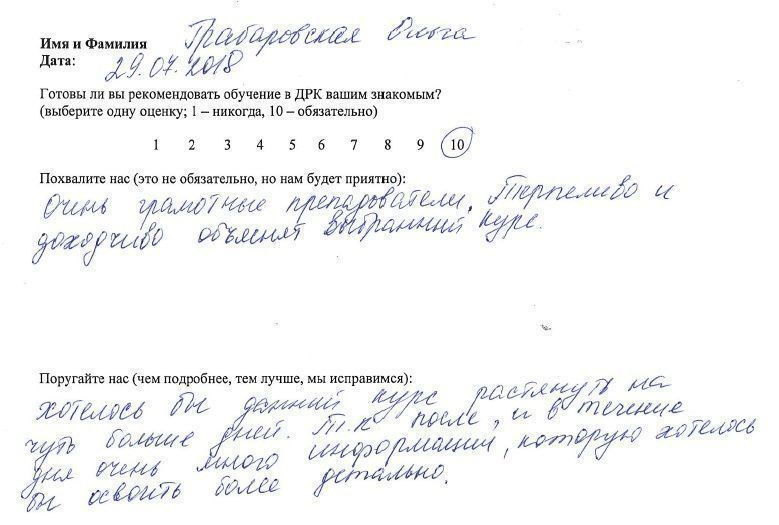 Имя и Фамилия Грабаровская Ольга
Дата: 29.07.2018
Готовы ли вы рекомендовать обучение в ДРК вашим знакомым?
(выберите одну оценку; 1 – никогда, 10 – обязательно)
1 2 3 4 5 6 7 8 9 10
Похвалите нас (это не обязательно, но нам будет приятно):
Очень грамотные преподователи. Терпеливо и
доходчиво объяснят выбранный курс.
Поругайте нас (чем подробнее, тем лучше, мы исправимся):
хотелось бы данный курс растянуть на
чуть больше дней. Т.к после, и в течение
дня очень много информации, которую хотелось
бы освоить более детально.